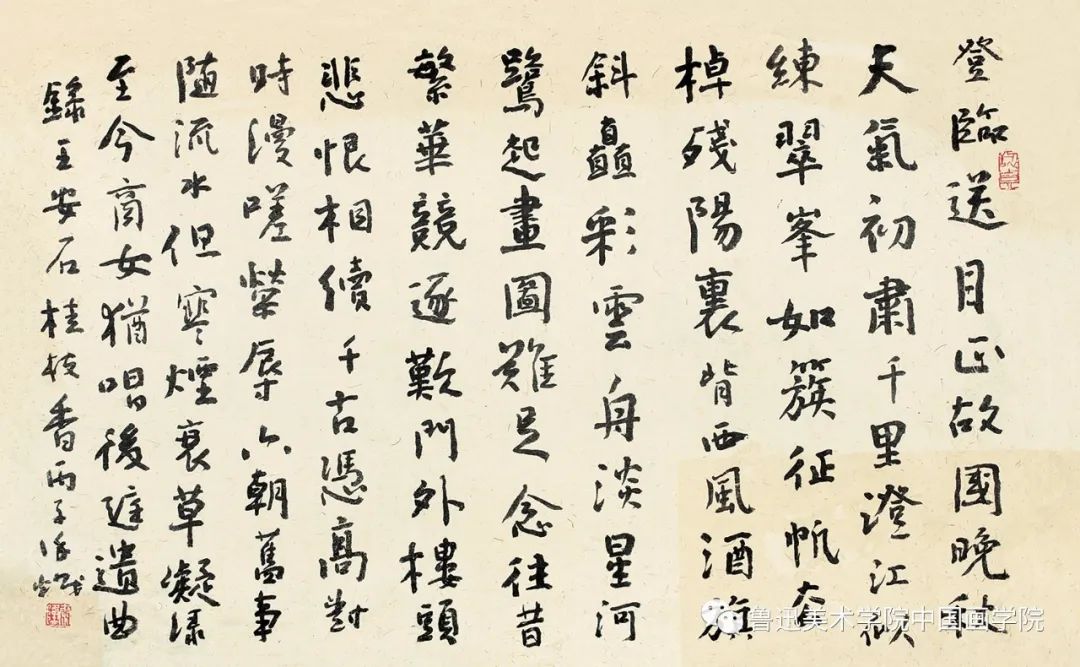 登臨送目正故國晚秋
天氣初肅千里澄江似
練翠峯如簇征帆去
棹殘陽裏背西風酒旗
斜矗彩雲舟淡星河
鷺起畫圖難足念往昔
繁華競逐歎門外樓頭
悲恨相續千古憑高對
時漫嗟榮辱六朝舊事
随流水但寒煙衰草凝緑
至今商女猶唱後庭遺曲
錄王安石桂枝香丙子
鲁迅美术学院中国画学院